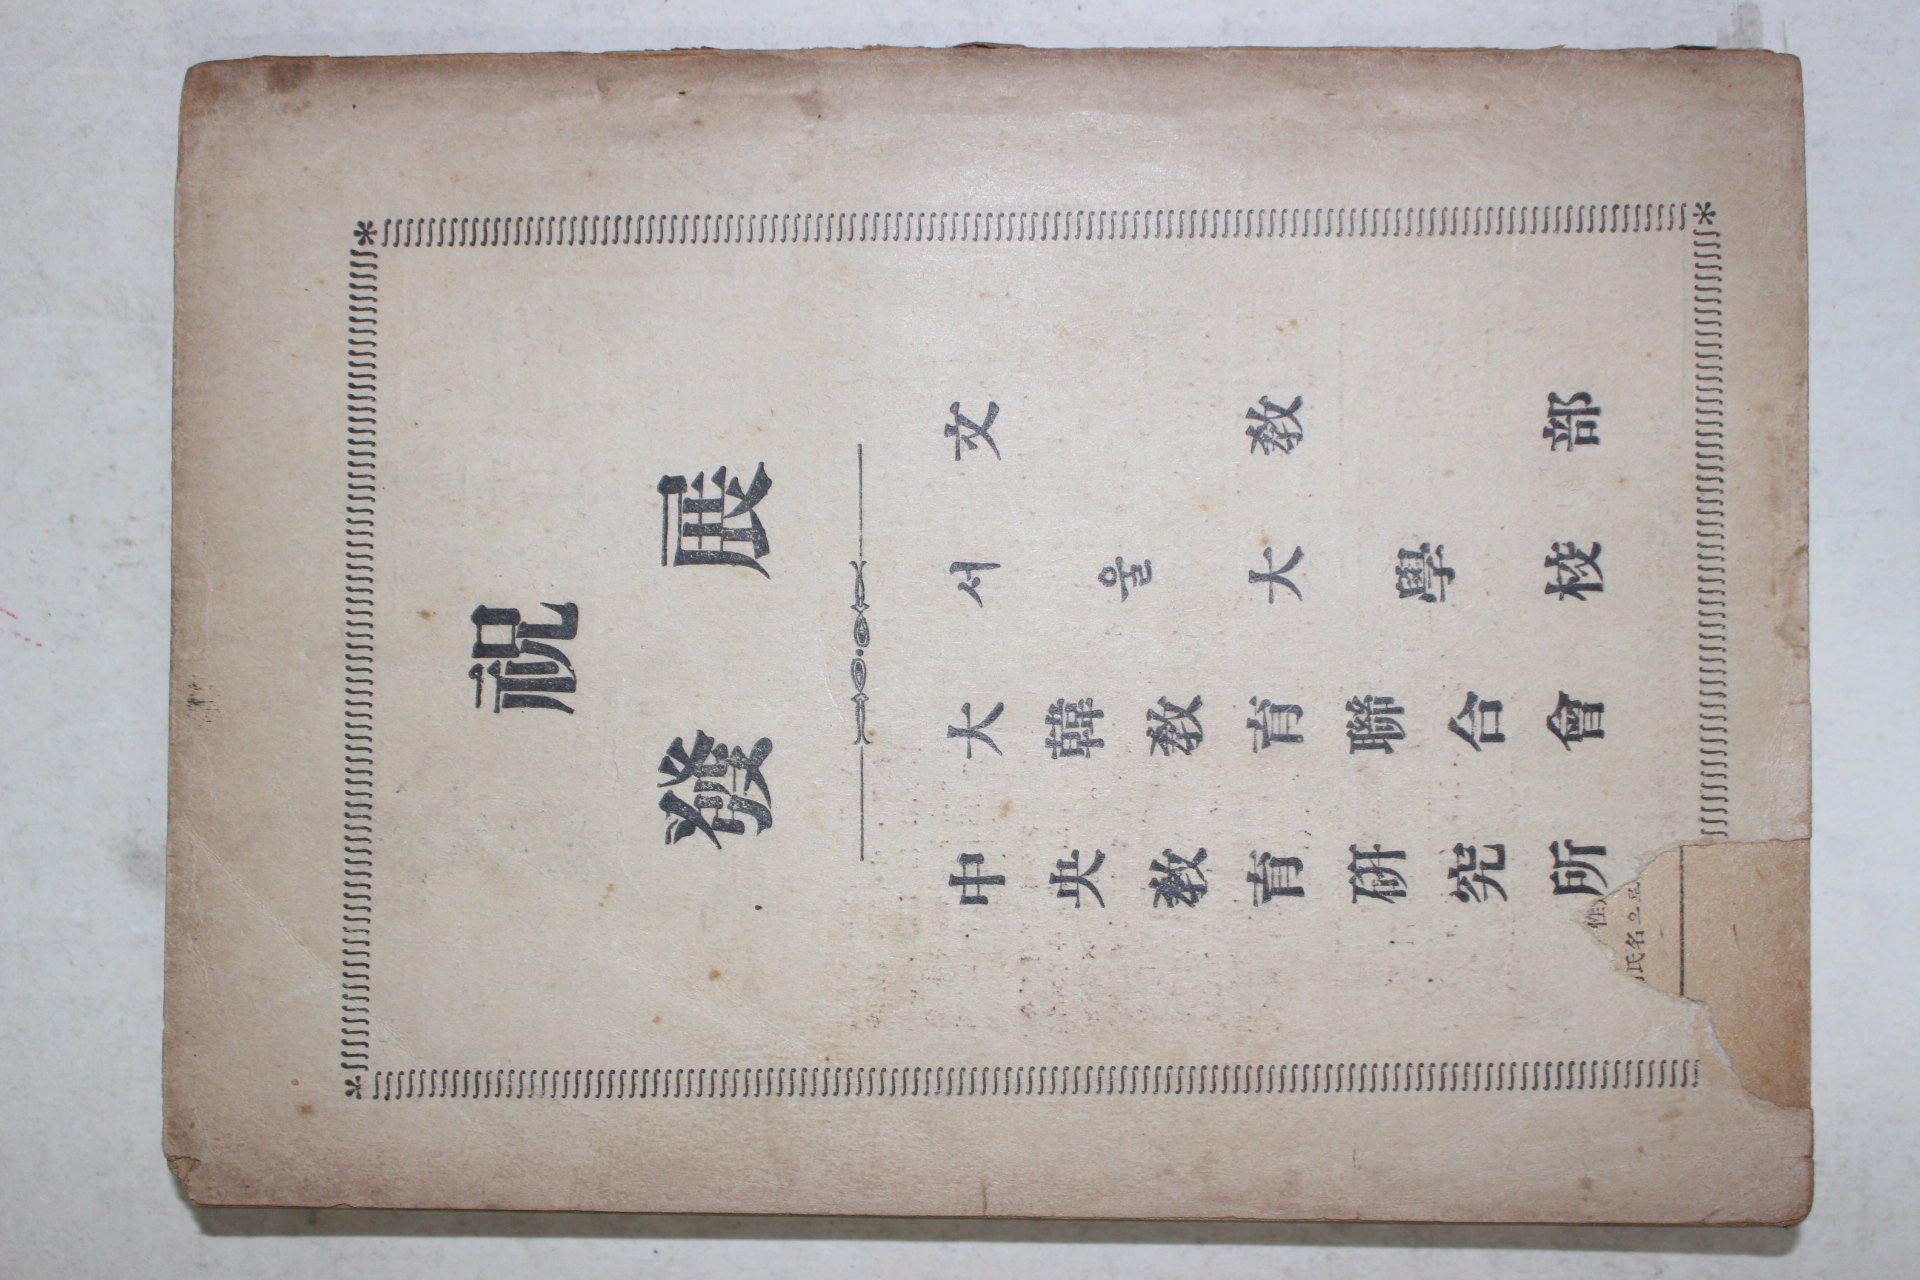 祝
發展
文敎部
서울大學校
大韓敎育聯合會
中央敎育硏究所
氏名으로